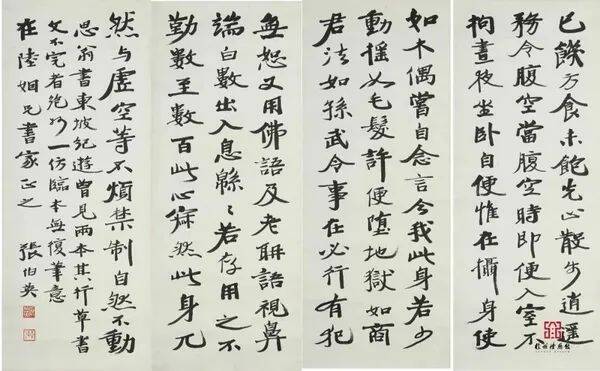 已饑方食未飽先止散步逍遙
務令腹空當腹空時即便入室不
拘晝夜坐臥自便惟在攝身使
如木偶嘗自念言今我此身若少
動搖如毛髮許便墮地獄如商
君法如孫武令事在必行有犯
無恕又用佛語及老聃語視鼻
端白數出入息緜〻若存用之不
勤數至數百此心寂然此身兀
然与虛空等不煩禁制自然不動
思翁書東坡紀遊曾見兩本其行草書
文不完者絕妙一仿臨本無復筆意
在陸姻兄書家正之 張伯英